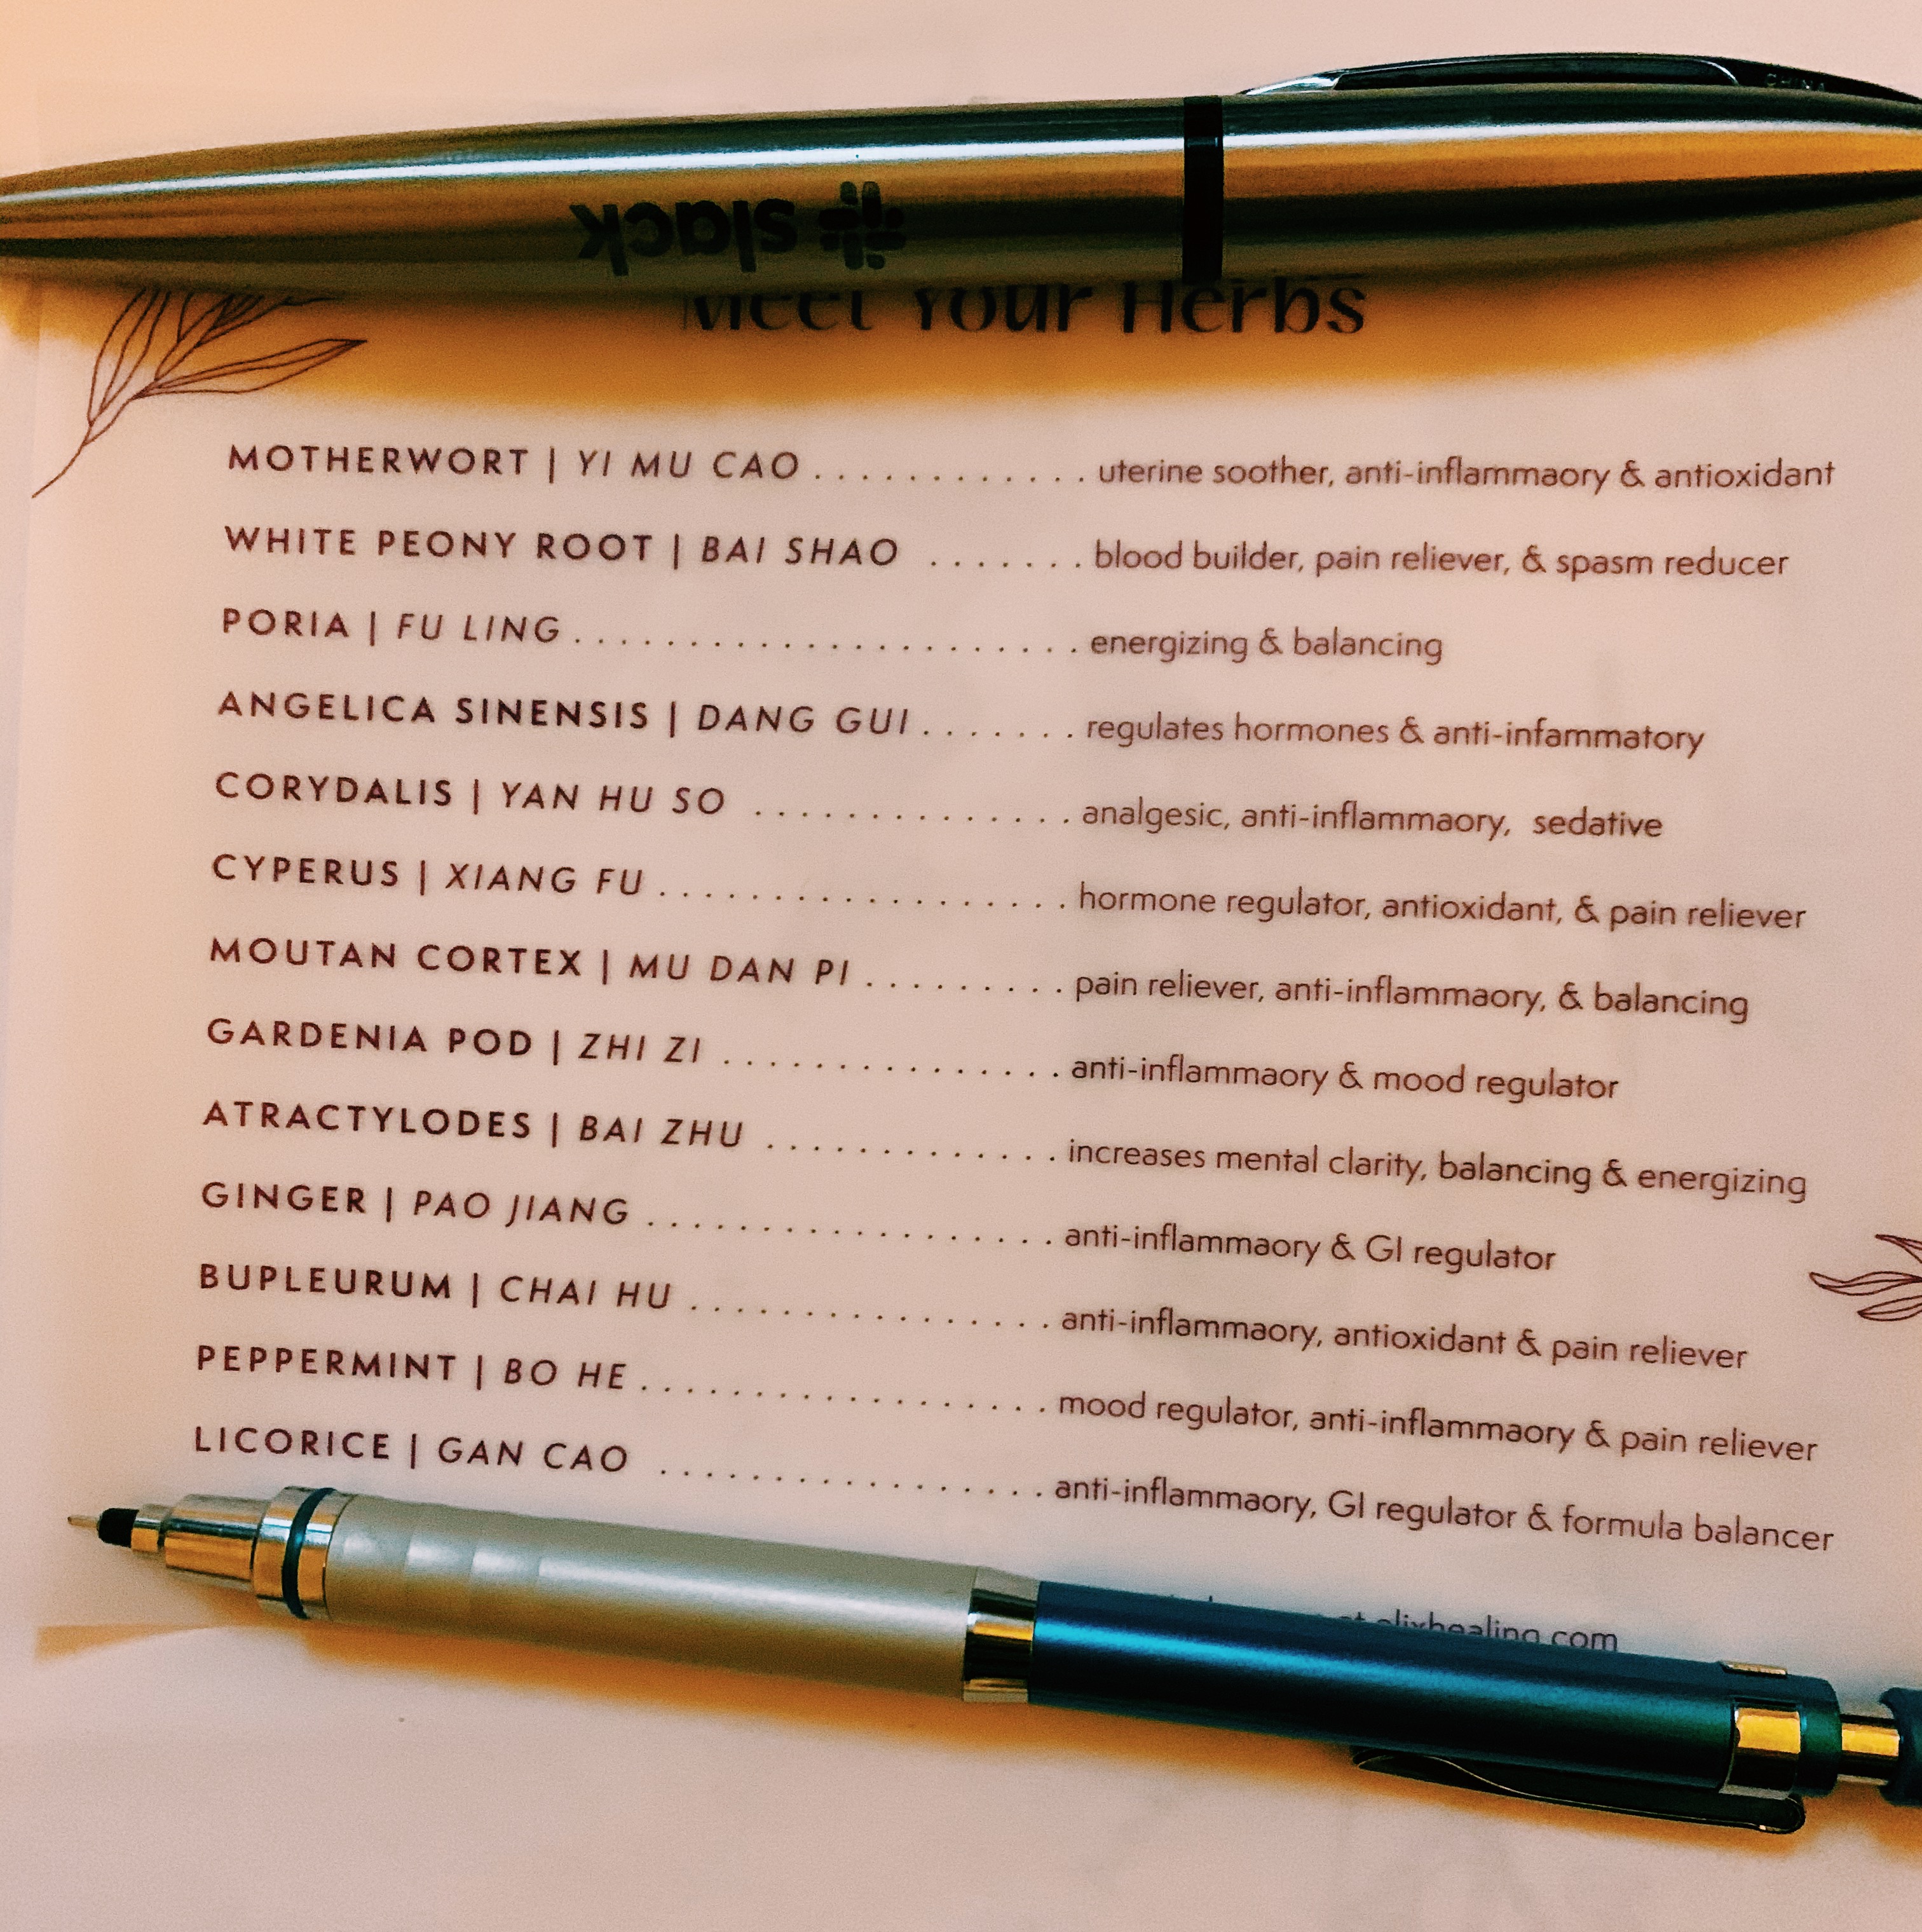 CHINA
slack
Meet Your Herbs
MOTHERWORT | YI MU CAO . . . . . . . . . . . . . uterine soother, anti-inflammaory & antioxidant
WHITE PEONY ROOT | BAI SHAO . . . . . . . blood builder, pain reliever, & spasm reducer
PORIA | FU LING . . . . . . . . . . . . . . . . . . . . . . . . energizing & balancing
ANGELICA SINENSIS | DANG GUI . . . . . . . regulates hormones & anti-infammatory
CORYDALIS | YAN HU SO . . . . . . . . . . . . . . . analgesic, anti-inflammaory, sedative
CYPERUS | XIANG FU . . . . . . . . . . . . . . . . . . . hormone regulator, antioxidant, & pain reliever
MOUTAN CORTEX | MU DAN PI . . . . . . . . . pain reliever, anti-inflammaory, & balancing
GARDENIA POD | ZHI ZI . . . . . . . . . . . . . . . . anti-inflammaory & mood regulator
ATRACTYLODES | BAI ZHU . . . . . . . . . . . . . increases mental clarity, balancing & energizing
GINGER | PAO JIANG . . . . . . . . . . . . . . . . . . . anti-inflammaory & GI regulator
BUPLEURUM | CHAI HU . . . . . . . . . . . . . . . . anti-inflammaory, antioxidant & pain reliever
PEPPERMINT | BO HE . . . . . . . . . . . . . . . . . . . mood regulator, anti-inflammaory & pain reliever
LICORICE | GAN CAO . . . . . . . . . . . . . . . . . anti-inflammaory, GI regulator & formula balancer
at elixhealing.com